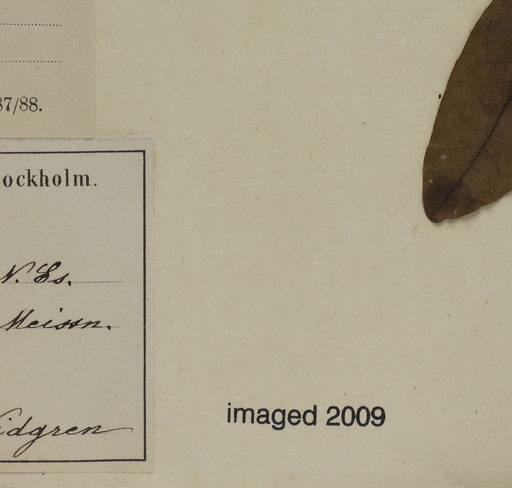 87/88.
ockholm.
N. Es.
Meissn.
idgren
imaged 2009